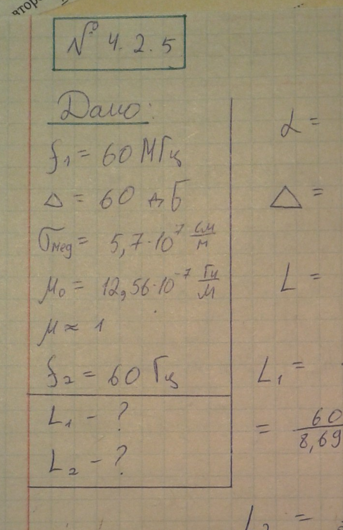 № 4.2.5
Дано:
f₁ = 60 МГц
Δ = 60 дБ
σмед = 5,7·10⁷ см/м
μ₀ = 12,56·10⁻⁷ Гн/м
μ ≈ 1
f₂ = 60 Гц
L₁ - ?
L₂ - ?
α =
Δ =
L =
L₁ =
= 60/8,69
L₂ =